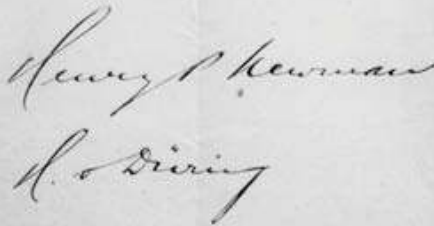 Henry P Newman
H. o Düring